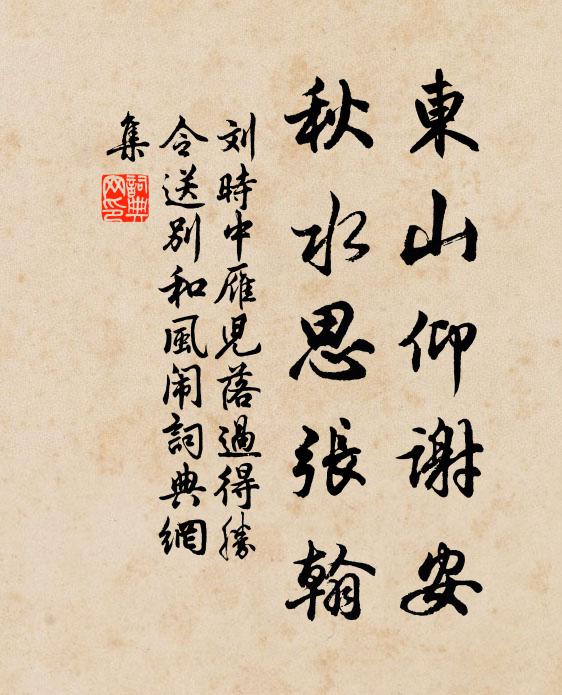 東山仰謝安
秋水思張翰
刘時中雁児落過得勝
令送別和風闹詞典網
集
詞典
网印